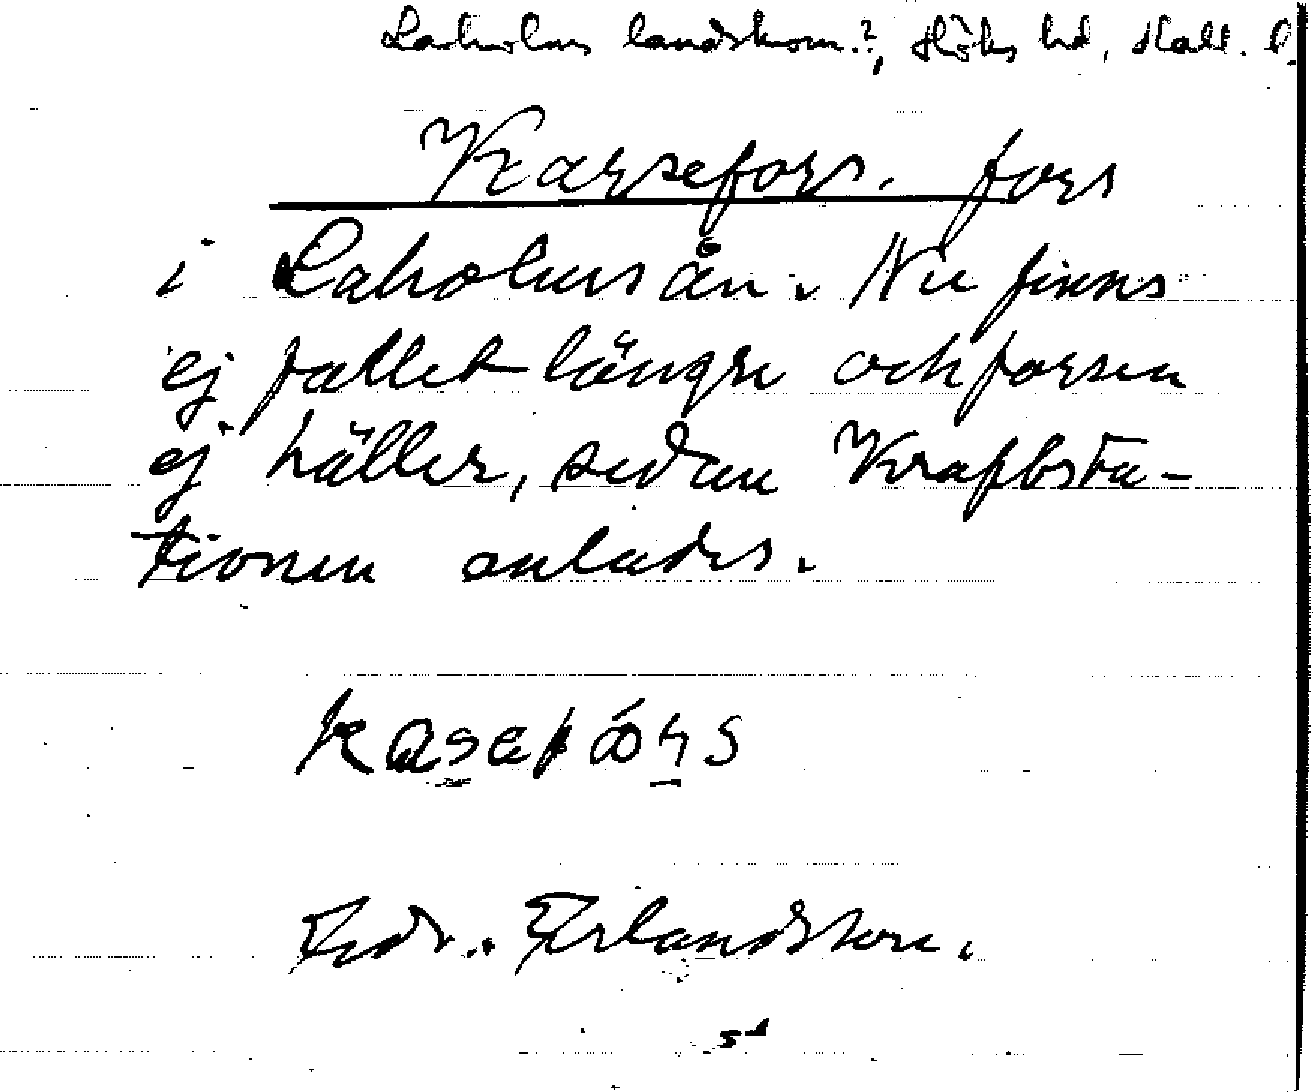 Laholms landskom.?, Höks hd, Hall. l.
Karsefors. fors
i Laholmsån. Nu finns
ej fallet längre och forsen
ej häller, sedan Kraftsta-
tionen anlades.
Fredr. Erlandsson.